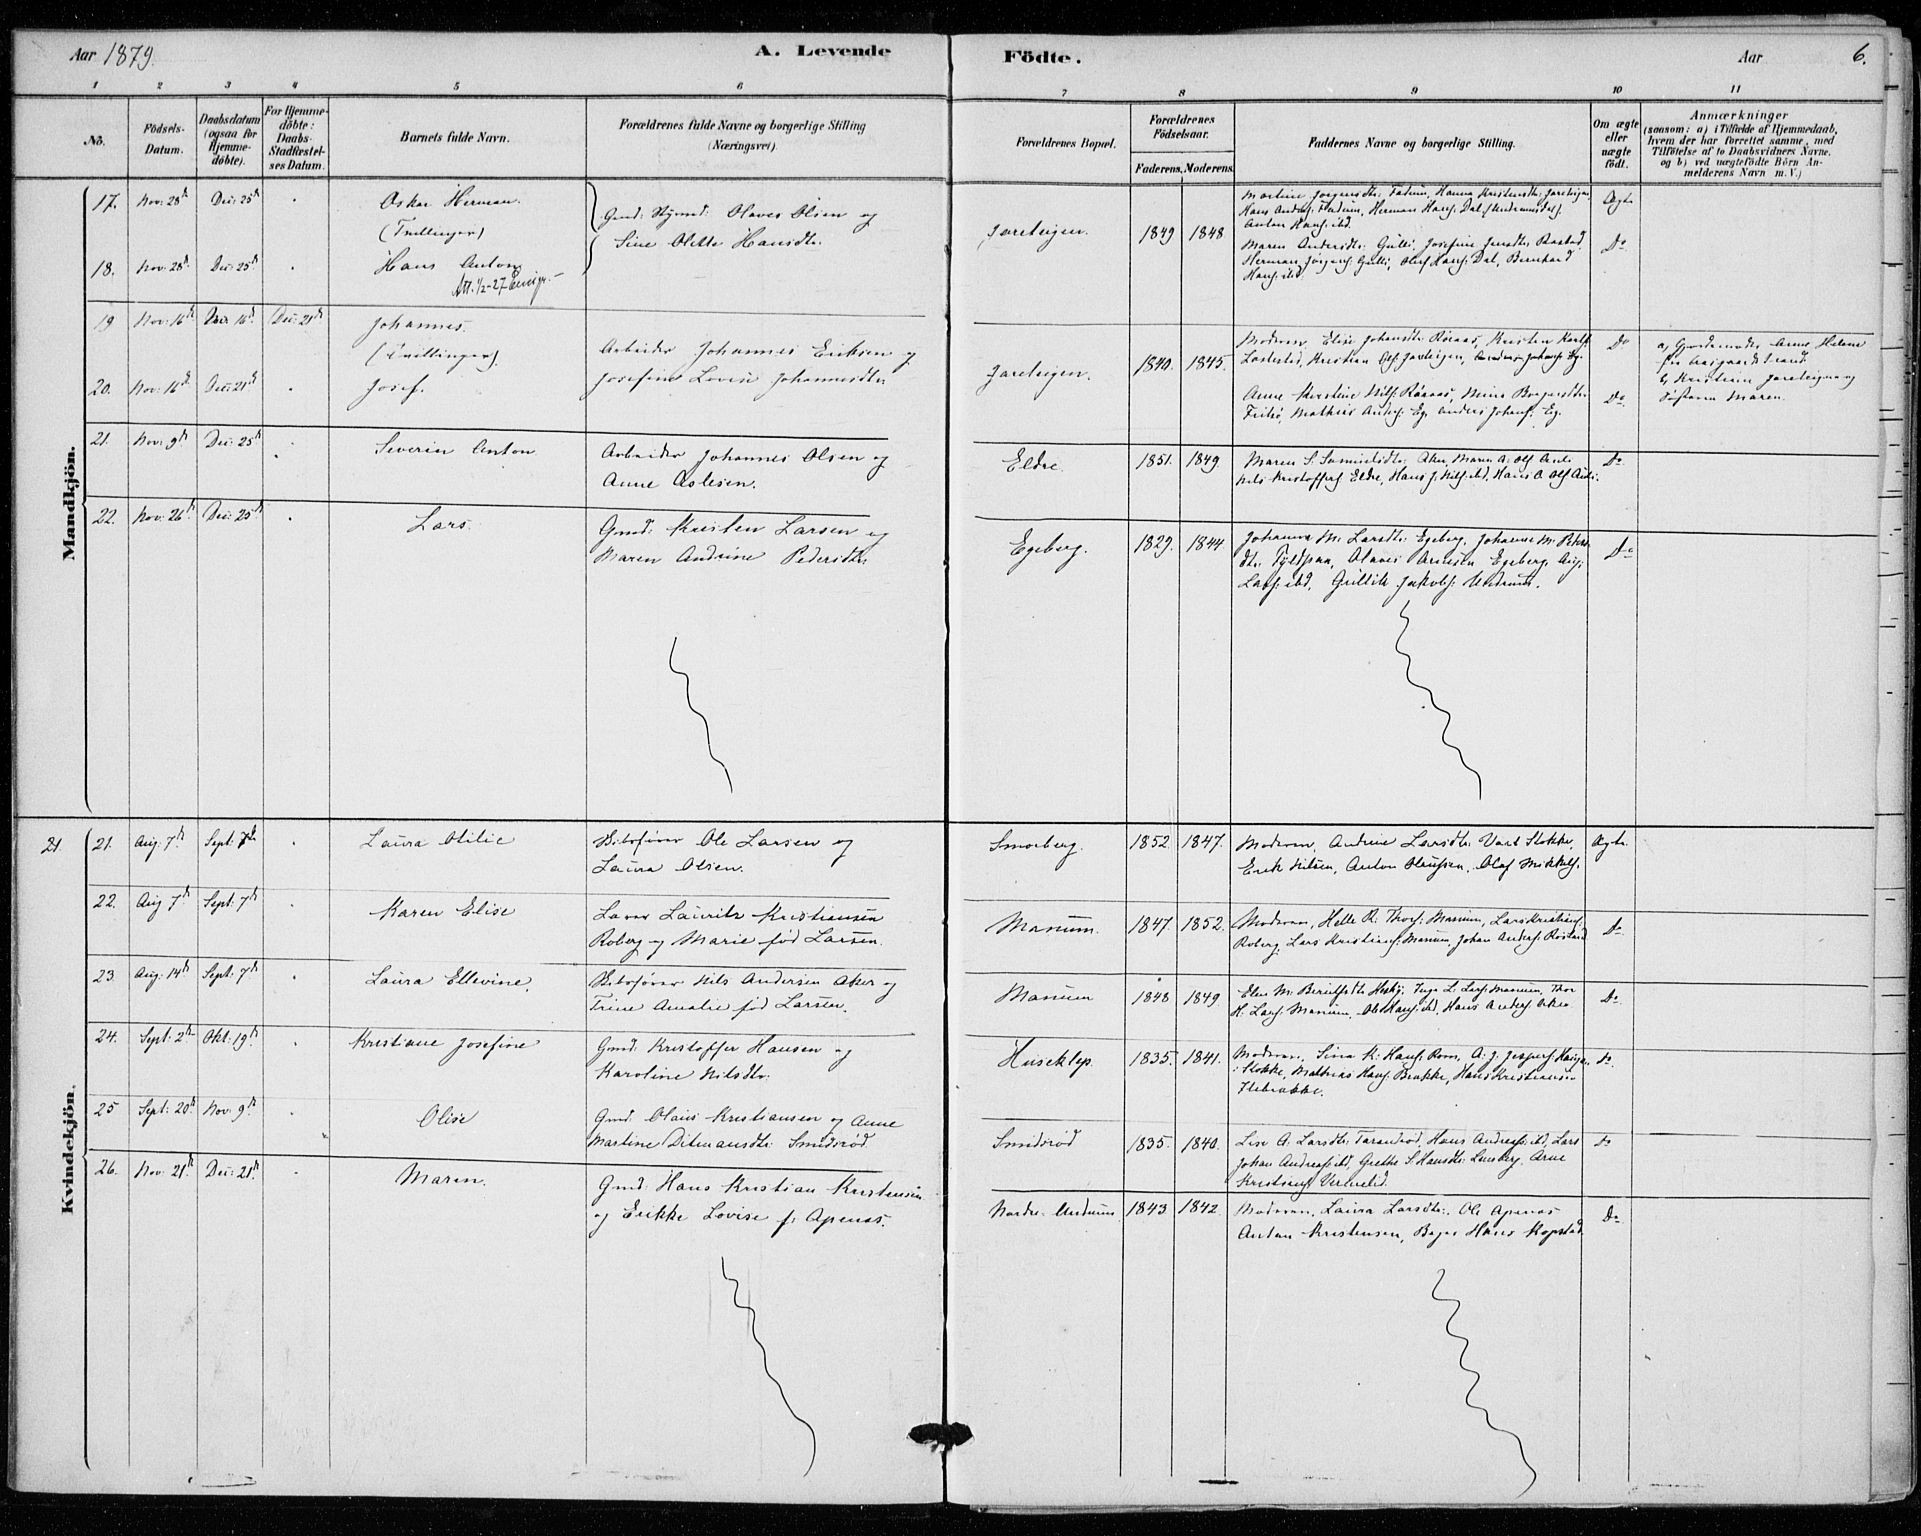 Aar 1879.
A. Levende
Födte.
Aar
6.
1 2 3 4 5 6 7 8 9 10 11
No.
Födsels-
Datum.
Daabsdatum
(ogsaa for
Hjemme-
döbte).
For Hjemme-
döbte:
Daabs-
Stadfæstel-
ses Datum.
Barnets fulde Navn.
Forældrenes fulde Navne og borgerlige Stilling
(Næringsvei).
Forældrenes Bopæl.
Forældrenes
Födselsaar.
Faderens. Moderens.
Faddernes Navne og borgerlige Stilling.
Om ægte
eller
uægte
födt.
Anmærkninger
(saasom: a) i Tilfælde af Hjemmedaab,
hvem der har forrettet samme, med
Tilföielse af to Daabsvidners Navne,
og b) ved uægtefödte Börn An-
melderens Navn m. V.)
Mandkjön.
17. Nov: 28de Dec: 25de Oskar Herman.
(Tvillinger)
Gmd: Olaves Olsen og
Sine Olette Hansdtr.
Jareteigen. 1849 1848
Martine Jörgensdtr: Fadum, Hanna Kristensdtr: Jareteigen,
Hans Andrs: Fadum, Herman Hans: Dal
Anton Hans: ibd.
Ægte
18. Nov: 28de Dec: 25de Hans Anton
Att. 1/2-27
Maren Andersdtr: Gulli, Josefine Jensdtr: Rastad
Herman Jörgens: Gulli, Oluf Hans: Dal, Bernhard
Hans: ibd.
Do
19 Nov: 16de Dec: 16de Dec: 21de Johannes.
(Tvillinger).
Arbeider Johannes Eriksen og
Josefine Lovise Johannesdtr
Jareteigen. 1840. 1845.
Moderen, Elise Johansdtr Röraas, Kristen Karls:
Kristian Ols: Jareteigen, Anders Johans: Eg.
Do
a, Gjordemoder Anne Helene
fra Aasgaardstrand
b, Kristian Jareteigen og
Søsteren Maren.
20. Nov: 16de Dec: 21de Josef.
Anne Kirstine Nils: Röraas, Mina
Mathias Anders: Eg, Anders Johans: Eg.
Do.
21. Nov: 9de Dec: 25de Severin Anton
Arbeider Johannes Olsen og
Anne Aslesen.
Eldre 1851. 1849.
Maren S. Samuelsdtr: Aker, Maren A. Ols: Auli
Nils Kristoffers: Eldre, Hans J. Nils: ibd, Hans A. Ols: Auli.
Do
22. Nov: 26de Dec: 25de Lars.
Gmd: Kristen Larsen og
Maren Andrine Pedersdtr.
Egeberg. 1829. 1844
Johanna M. Larsdtr: Egeberg, Johanne M. Peders-
dtr: Fyldpaa, Olaves Arnesen Egeberg, Aug:
Lars: ibd, Gullik Jakobs: Undrum.
Do
Kvindekjön.
21.
21. Aug: 7de Sept: 7de Laura Otilie
Skibsförer Ole Larsen og
Laura Olsen.
Smörberg. 1852 1847.
Moderen, Andrine Larsdtr: Stokke,
Erik Nilsen, Anton Olaussen, Olaf Mikkels:
Ægte.
22. Aug 7de Sept: 7de Karen Elise
Lauritz Kristiansen
Roberg og Marie fød Larsen.
Manum. 1847. 1852.
Moderen, Helle R. Thors: Manum, Lars Kristians:
Roberg, Lars Kristians: Manum, Johan Anders:
Do
23. Aug: 14de Sept: 7de Laura Ellevine.
Skibsförer Nils Andersen Aker og
Trine Amalie fød Larsen.
Manum 1848 1849
Inga L. Lars: Manum, Thor
H. Lars: Manum, Ole Hans: ibd, Hans Anders: Aker
Do
24. Sept: 2de Okt: 19de Kristiane Josefine
Gmd: Kristoffer Hansen og
Karoline Nilsdtr.
Huseklep. 1835. 1841.
Moderen, Sina K. Hans: Rom, A. J. Jespers:
i Stokke, Mathias Hans: Brekke, Hans Kristiansen
Do
25 Sept: 20de Nov: 9de Olise
Gmd: Olaus Kristiansen og Anne
Martine Ditmansdtr: Smidsröd
Smidsröd 1835. 1840.
Lise A. Larsdtr: Tarandröd, Hans Andreas: ibd, Lars
Johan Andreas: ibd, Grethe S. Hansdtr: Lensberg, Arne
Kristians:
Do
26. Nov: 21de Dec: 21de Maren.
Gmd: Hans Kristian Kristensen
og Erikke Lovise f: Apenæs.
Nordre Undrum 1843 1842.
Moderen, Laura Larsdtr:, Ole Apenæs
Anton Kristensen, Hans Kopstad
Do